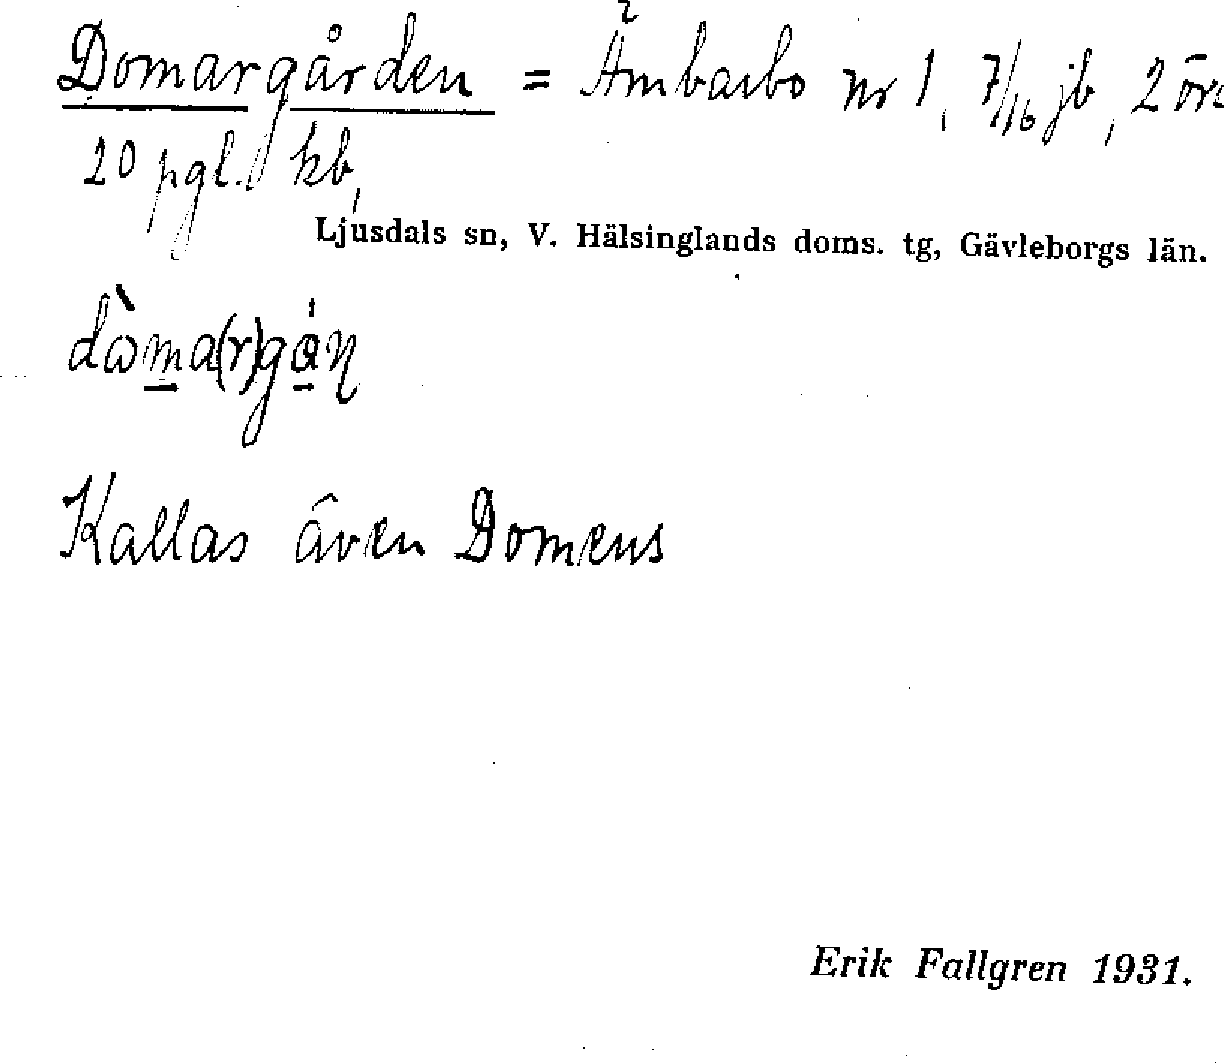 Domargården = Ämbarbo nr 1, 7/16 jb, 2 öre
20 pgl. kb,
Ljusdals sn, V. Hälsinglands doms. tg, Gävleborgs län.
dὼma(r)gȧ́ɳ
Kallas även Domens
Erik Fallgren 1931.